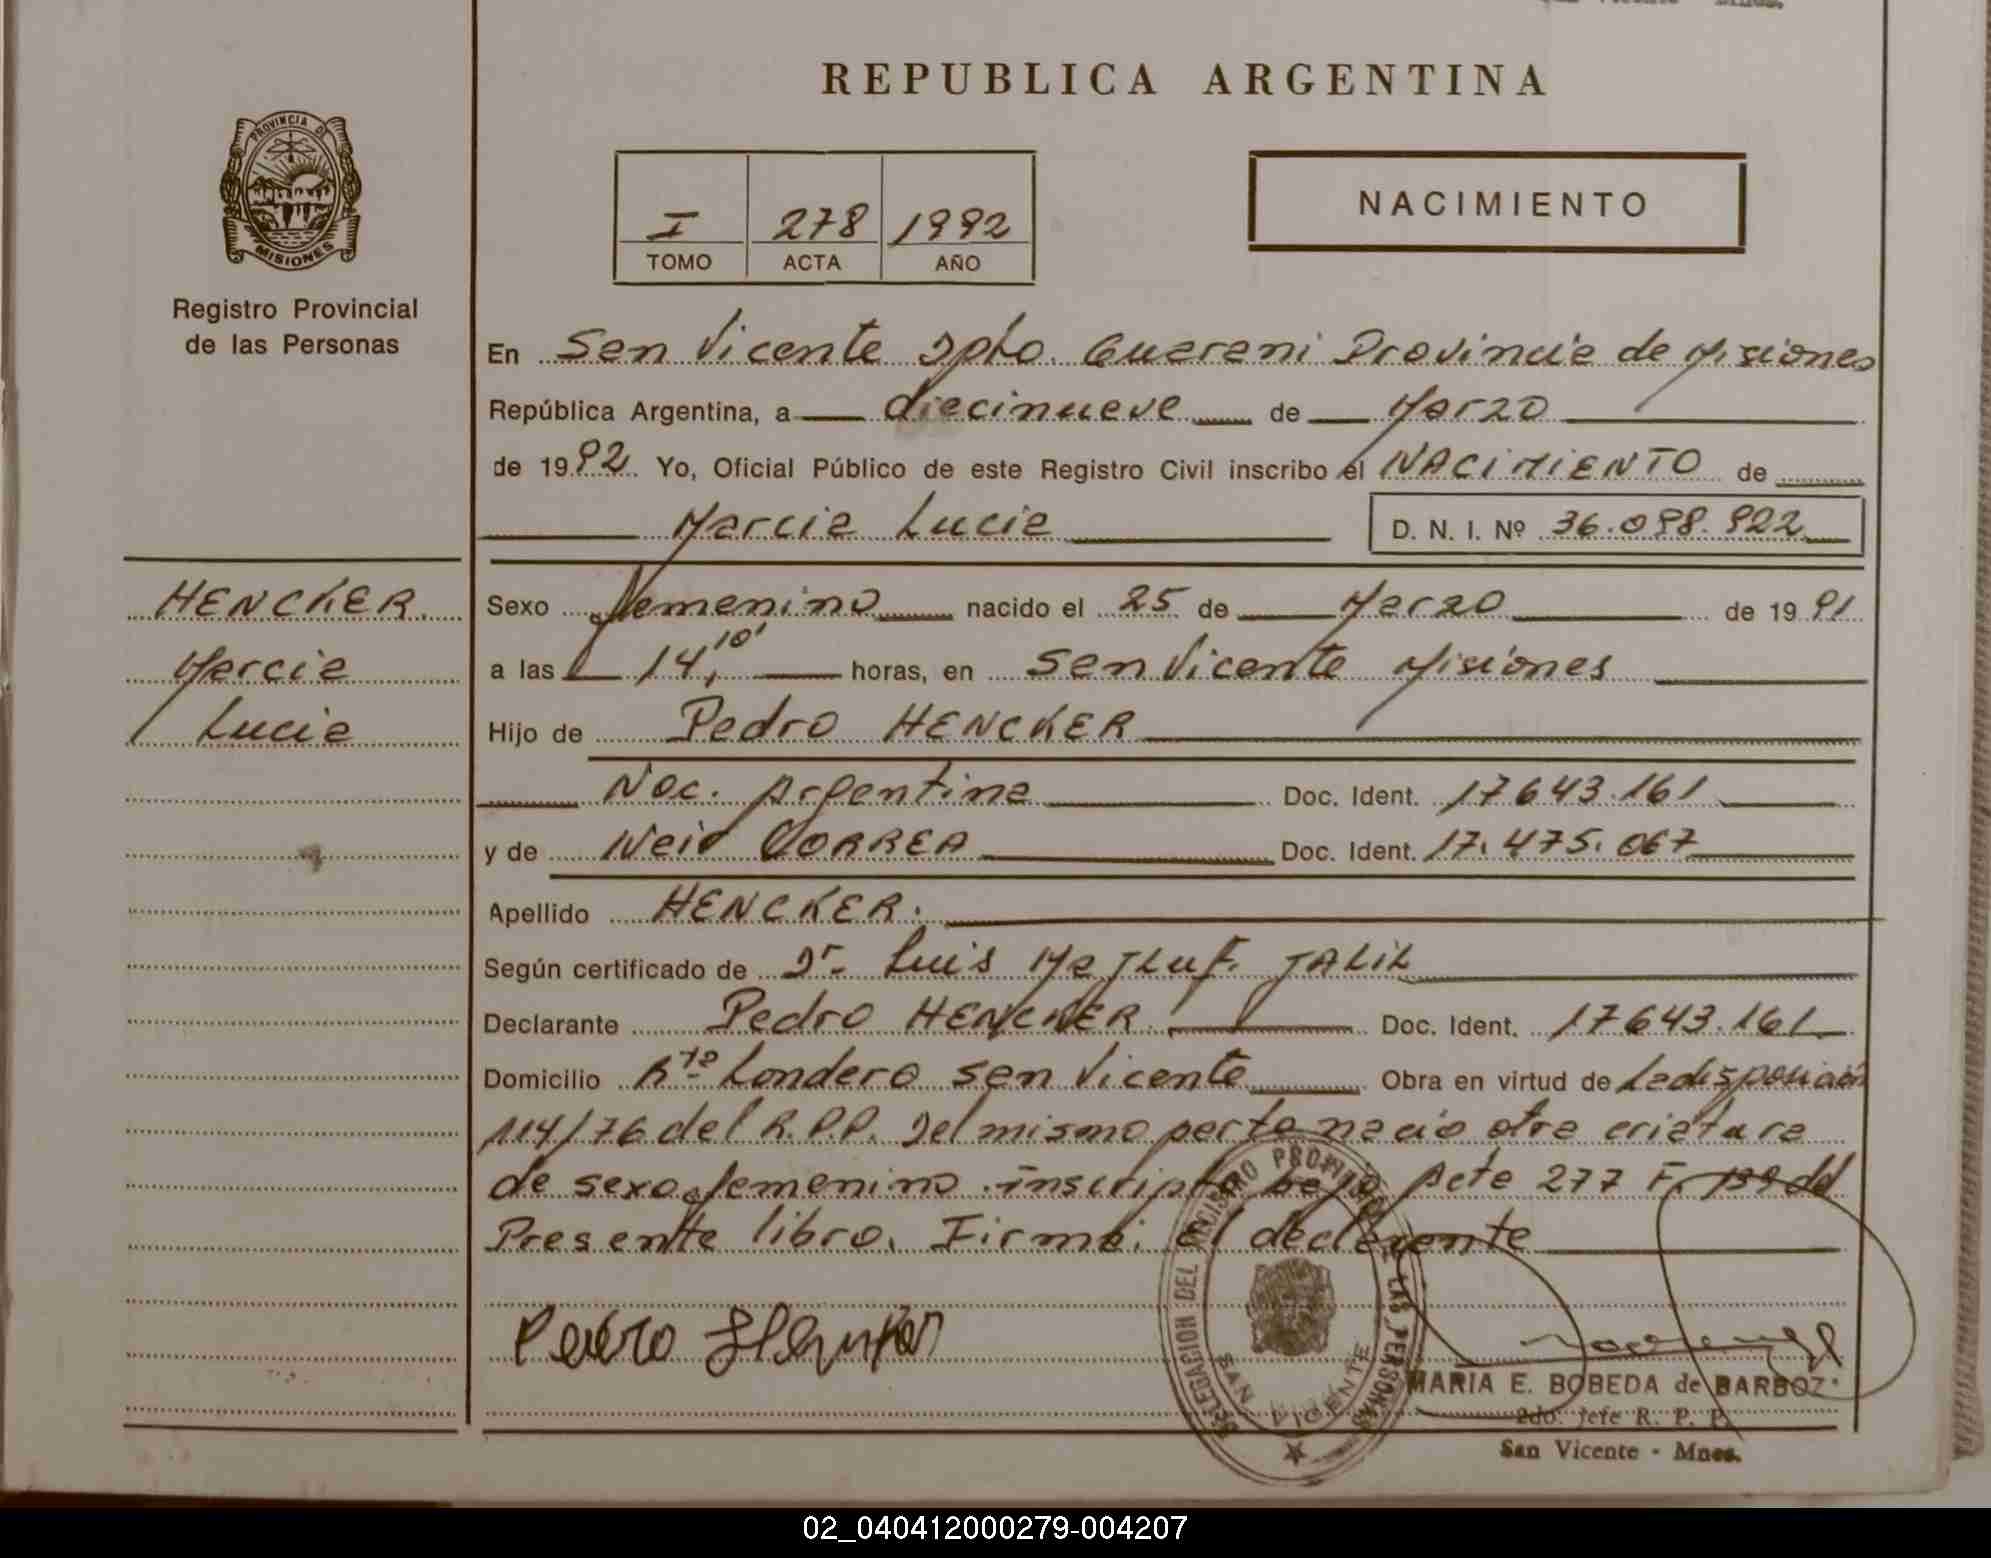 REPUBLICA ARGENTINA
PROVINCIA DE
MISIONES
Registro Provincial
de las Personas
I 278 1992
TOMO ACTA AÑO
NACIMIENTO
En San Vicente Dpto. Guarani Provincia de Misiones
República Argentina, a diecinueve de Marzo
de 1992. Yo, Oficial Público de este Registro Civil inscribo el NACIMIENTO de
Marcia Lucia D. N. I. Nº 36.098.922
HENCKER.
Marcia
Lucia
Sexo femenino nacido el 25 de Marzo de 1991
a las 14,10' horas, en San Vicente Misiones
Hijo de Pedro HENCKER
Nac. Argentina Doc. Ident. 17643.161
y de CORREA Doc. Ident. 17.475.067
Apellido HENCKER.
Según certificado de Dr. Luis JALIL
Declarante Pedro HENCKER. Doc. Ident. 17643.161
Domicilio Londero San Vicente Obra en virtud de La disposición
114/76 del R.P.P. Del mismo parto nació otra criatura
de sexo femenino inscripta bajo Acta 277 F. 139 del
Presente libro. Firma: el declarante
Pedro Hencker
DELEGACION DEL REGISTRO PROVINCIAL DE LAS PERSONAS
SAN VICENTE
MARIA E. BOBEDA de BARBOZ
2do. Jefe R. P. P.
San Vicente - Mnes.
02_040412000279-004207